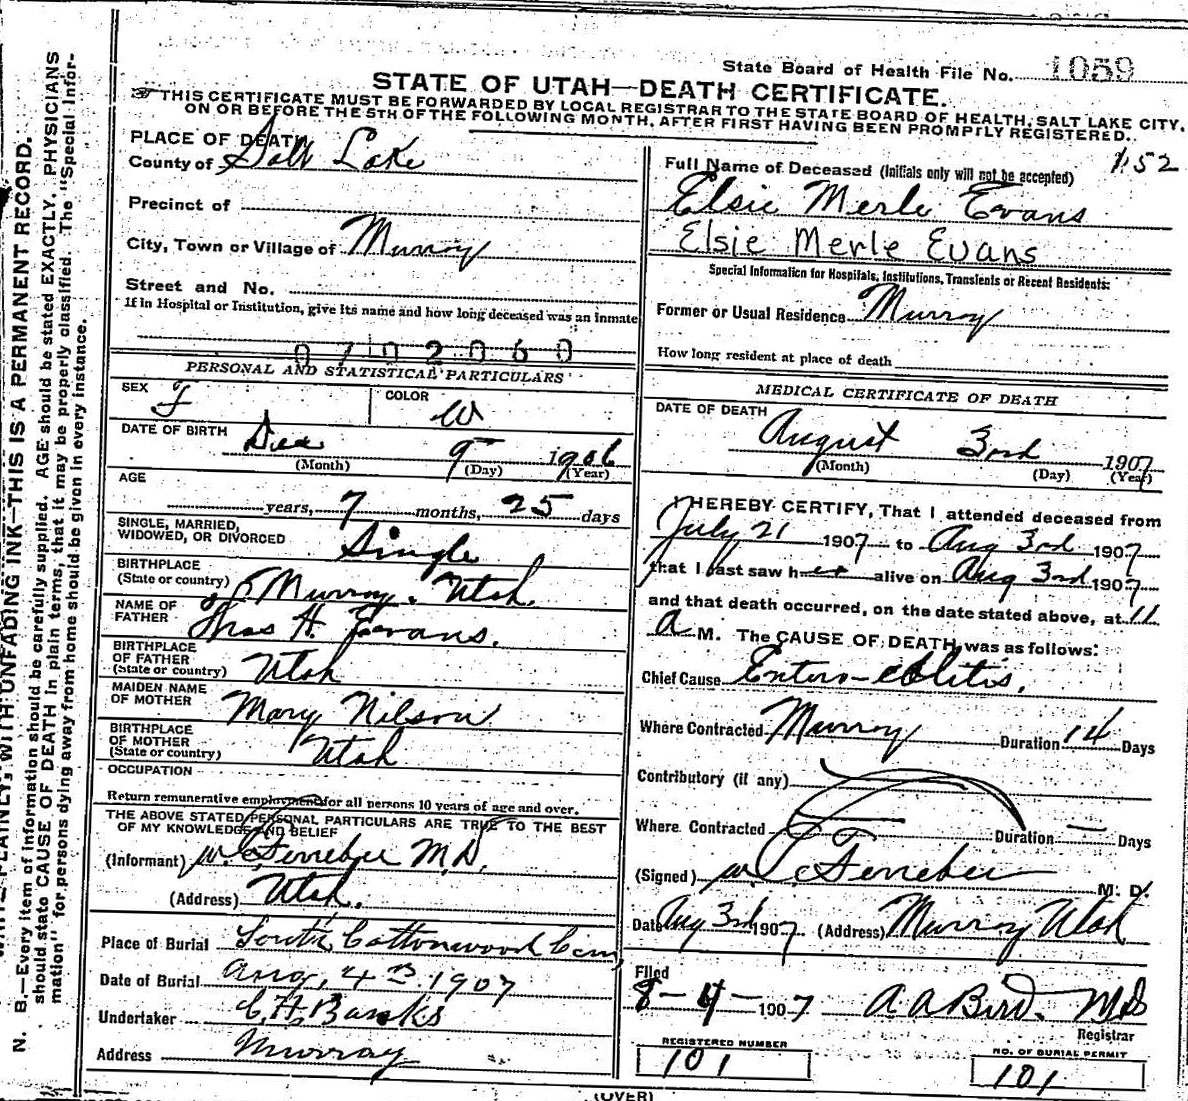 State Board of Health File No. 1059
STATE OF UTAH—DEATH CERTIFICATE.
THIS CERTIFICATE MUST BE FORWARDED BY LOCAL REGISTRAR TO THE STATE BOARD OF HEALTH, SALT LAKE CITY,
ON OR BEFORE THE 5TH OF THE FOLLOWING MONTH, AFTER FIRST HAVING BEEN PROMPTLY REGISTERED.
PLACE OF DEATH
County of Salt Lake
Precinct of
City, Town or Village of Murray
Street and No.
If in Hospital or Institution, give its name and how long deceased was an inmate
0702060
PERSONAL AND STATISTICAL PARTICULARS
SEX F COLOR W
DATE OF BIRTH Dec 9 1906
(Month) (Day) (Year)
AGE
years, 7 months, 25 days
SINGLE, MARRIED,
WIDOWED, OR DIVORCED Single
BIRTHPLACE
(State or country) Murray, Utah.
NAME OF
FATHER Thos H. Evans.
BIRTHPLACE
OF FATHER
(State or country) Utah
MAIDEN NAME
OF MOTHER Mary Nilson
BIRTHPLACE
OF MOTHER
(State or country) Utah
OCCUPATION
Return remunerative employment for all persons 10 years of age and over.
THE ABOVE STATED PERSONAL PARTICULARS ARE TRUE TO THE BEST
OF MY KNOWLEDGE AND BELIEF
(Informant) M.D.
(Address) Utah.
Place of Burial South Cottonwood Cem
Date of Burial Aug. 4th 1907
Undertaker C.H. Banks
Address Murray
1152
Full Name of Deceased (Initials only will not be accepted)
Elsie Merle Evans
Elsie Merle Evans
Special Information for Hospitals, Institutions, Transients or Recent Residents:
Former or Usual Residence Murray
How long resident at place of death
MEDICAL CERTIFICATE OF DEATH
DATE OF DEATH August 3rd 1907
(Month) (Day) (Year)
I HEREBY CERTIFY, That I attended deceased from
July 21 1907 to Aug 3rd 1907
that I last saw her alive on Aug 3rd 1907
and that death occurred, on the date stated above, at 11
a M. The CAUSE OF DEATH was as follows:
Chief Cause Entero-colitis.
Where Contracted Murray Duration 14 Days
Contributory (if any)
Where Contracted Duration — Days
(Signed) M. D.
Date Aug 3rd 1907 (Address) Murray Utah
Filed
8-4-1907 A A Bird. MD
Registrar
REGISTERED NUMBER
101
NO. OF BURIAL PERMIT
101
(OVER)
WRITE PLAINLY, WITH UNFADING INK—THIS IS A PERMANENT RECORD.
N. B.—Every item of information should be carefully supplied. AGE should be stated EXACTLY. PHYSICIANS
should state CAUSE OF DEATH in plain terms, that it may be properly classified. The "Special Infor-
mation" for persons dying away from home should be given in every instance.